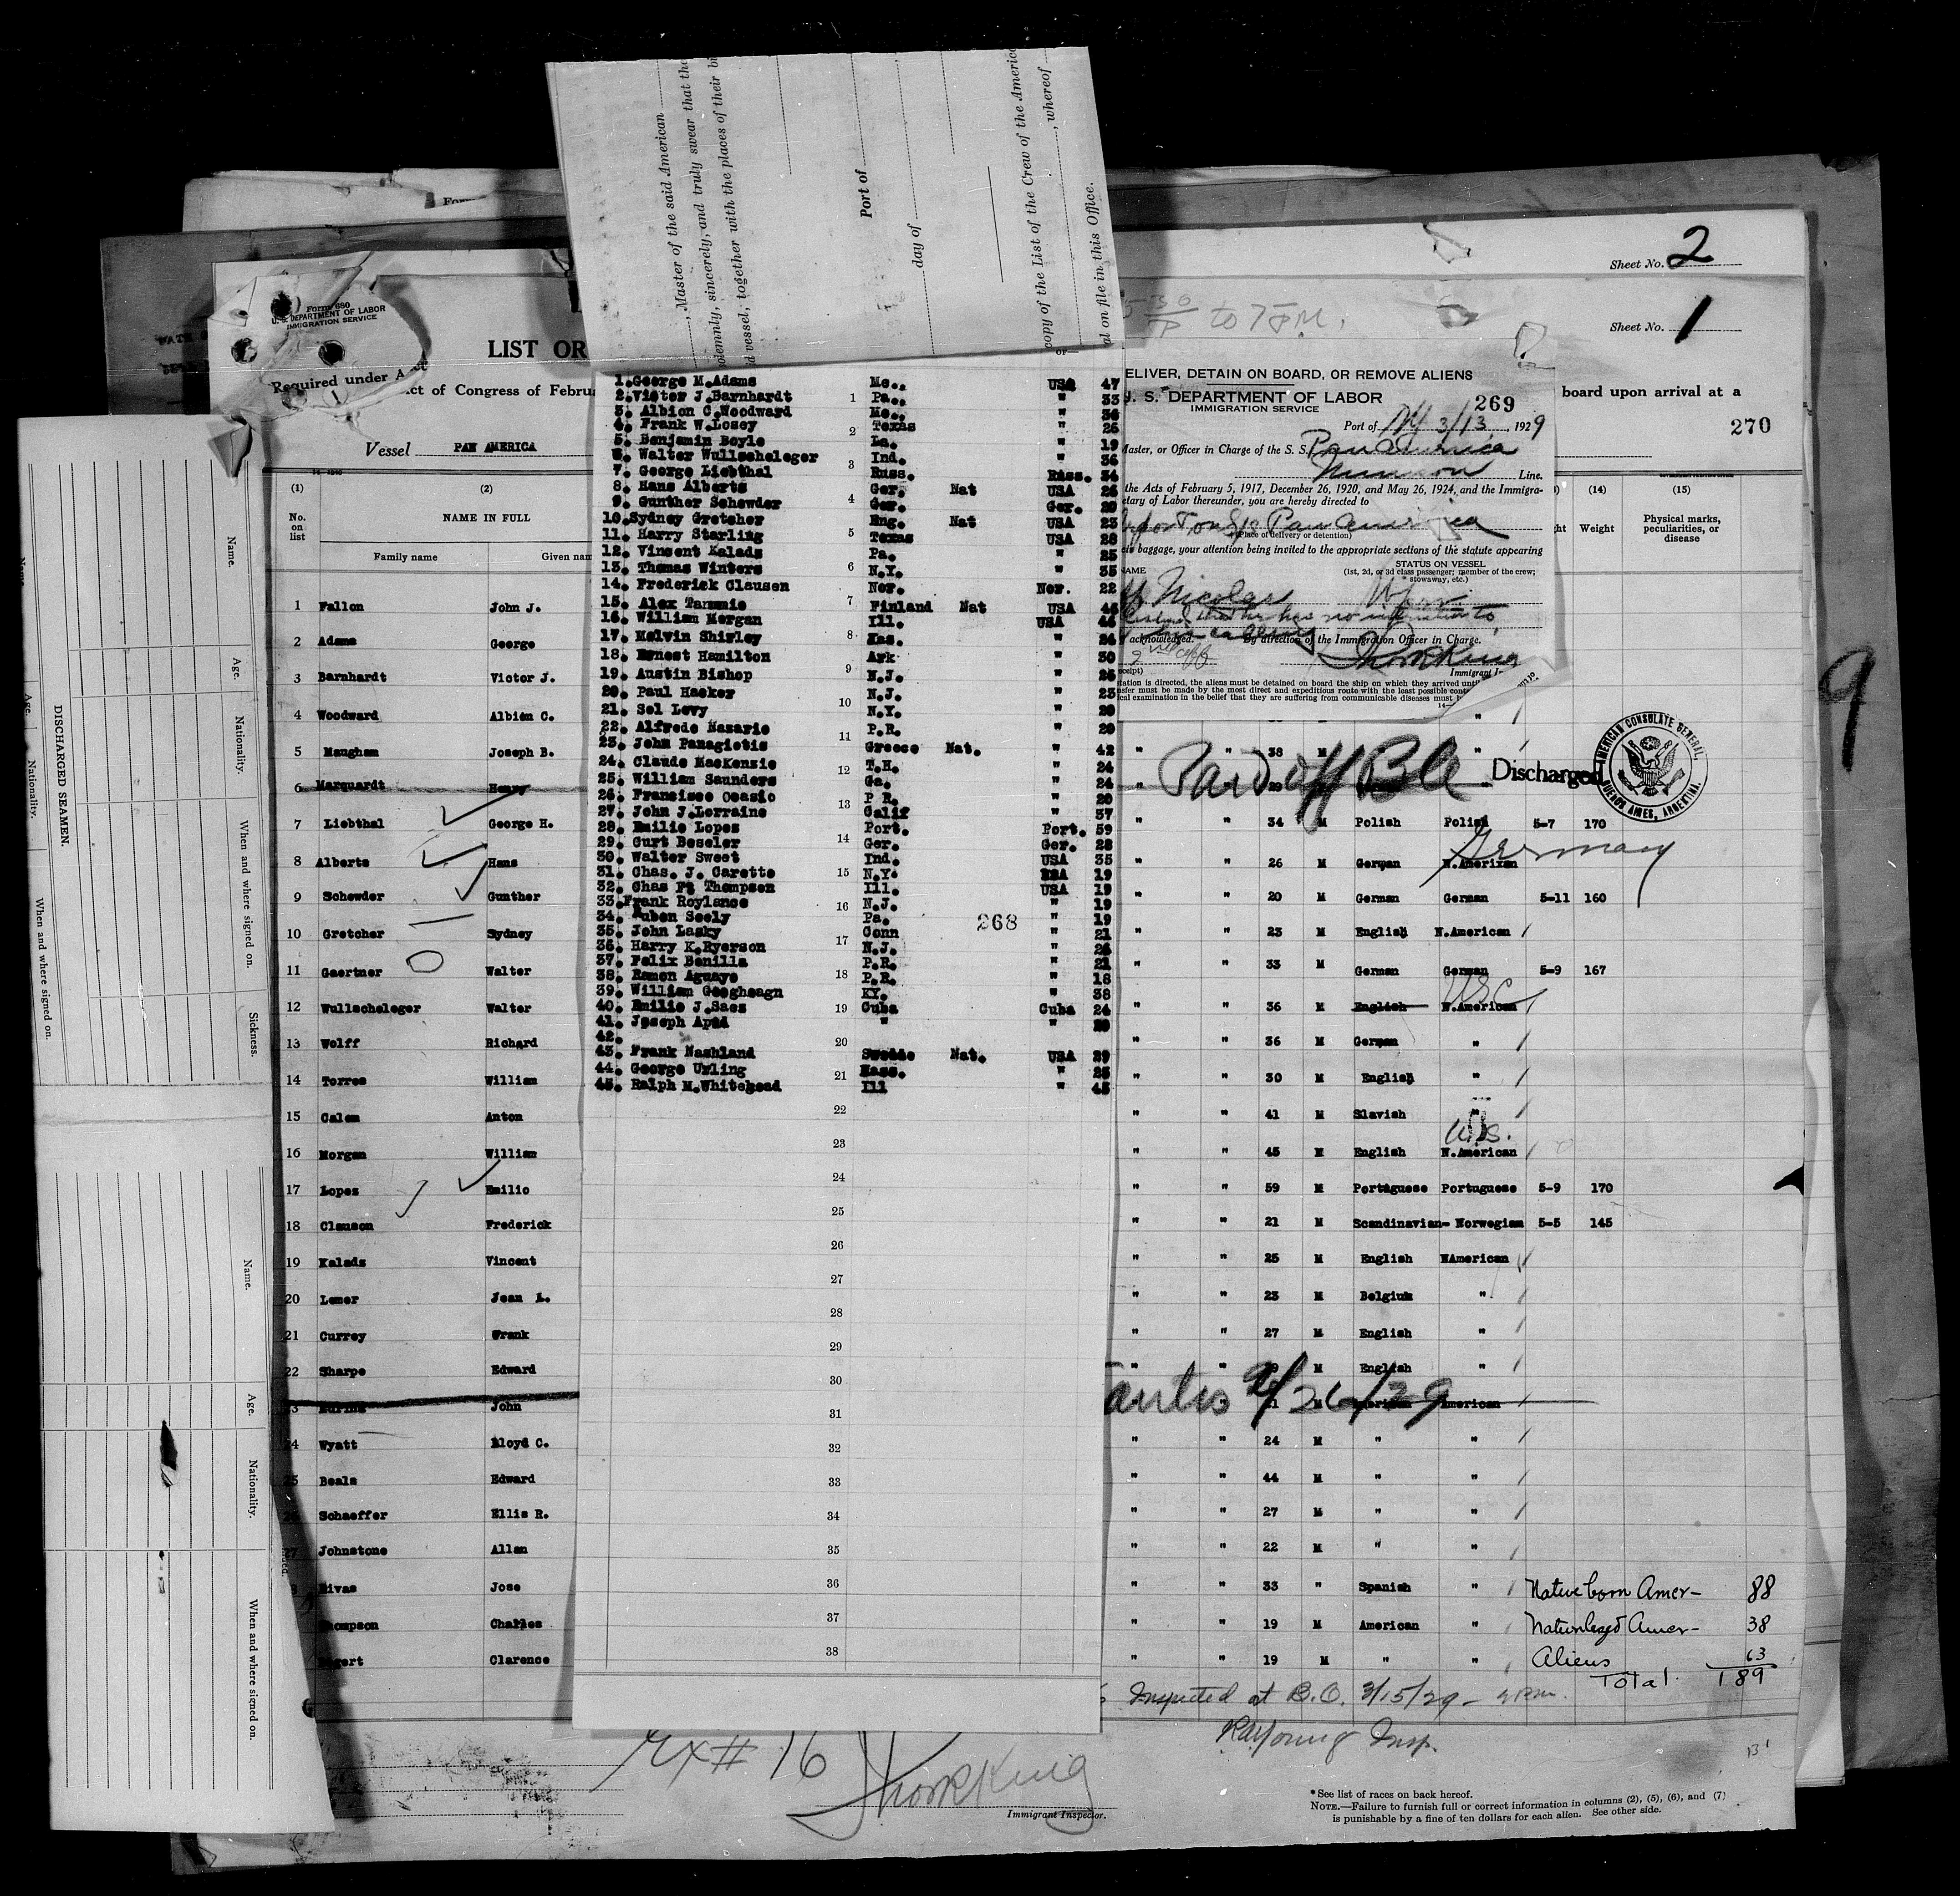 , Master of the said American
olemnly, sincerely, and truly swear that the
d vessel, together with the places of their bi
Port of
day of
copy of the List of the Crew of the America
, whereof
al on file in this Office.
Sheet No. 2
Sheet No. 1
to 7 P.M.
Form 680
U. S. DEPARTMENT OF LABOR
IMMIGRATION SERVICE
LIST OR
Required under A
ct of Congress of Februa
board upon arrival at a
270
Vessel PAN AMERICA
(1) (2)
No. on list
NAME IN FULL
Family name Given nam
1 Fallon John J.
2 Adams George
3 Barnhardt Victor J.
4 Woodward Albion C.
5 Maugham Joseph B.
6 Marquardt Henry
7 Liebthal George H.
8 Alberts Hans
9 Schewder Gunther
10 Gretcher Sydney
11 Gaertner Walter
12 Wullscheleger Walter
13 Wolff Richard
14 Torres William
15 Calem Anton
16 Morgan William
17 Lopez Emilio
18 Clauson Frederick
19 Kalads Vincent
20 Lemer Jean L.
21 Currey Frank
22 Sharpe Edward
John
24 Wyatt Lloyd C.
25 Beals Edward
26 Schaeffer Ellis R.
27 Johnstone Allan
Rivas Jose
Thompson Charles
Clarence
1. George M.Adams Mo.. USA 47
2. Victor J.Barnhardt Pa.. " 33
3. Albion C.Woodward Mo.. " 36
4. Frank W.Losey Texas " 26
5. Benjamin Boyle La. " 19
6. Walter Wullscheleger Ind. " 36
7. George Liebthal Russ. Russ. 34
8. Hans Alberts Ger. Nat USA 26
9. Gunther Schewder Ger. Ger. 20
10. Sydney Gretcher Eng. Nat USA 23
11. Harry Starling Texas USA 28
12. Vincent Kalads Pa. " 25
13. Thomas Winters N.Y. " 35
14. Frederick Clausen Nor. Nor. 22
15. Alex Tammie Finland Nat USA 46
16. William Morgan Ill. USA 46
17. Melvin Shirley Kas. "
18. Ernest Hamilton Ark " 30
19. Austin Bishop N.J. " 26
20. Paul Hacker N.J. " 23
21. Sol Levy N.Y. " 20
22. Alfredo Nazario P.R. " 20
23. John Panagiotis Greece Nat. " 42
24. Claude MacKenzie T.H. " 24
25. William Saunders Ga. " 24
26. Francisco Ocasio P R. " 20
27. John J.Lorraine Calif " 37
28. Emilio Lopes Port. Port. 59
29. Curt Beseler Ger. Ger. 28
30. Walter Sweet Ind. USA 35
31. Chas. J. Carette N.Y. USA 19
32. Chas F. Thompson Ill. USA 19
33. Frank Roylance N.J. " 19
34. Ruben Seely Pa. " 19
35. John Lasky Conn " 21
36. Harry K.Ryerson N.J. " 26
37. Felix Bonilla P.R. " 21
38. Ramon Aguayo P.R. " 18
39. William Geogheagn KY. " 38
40. Emilio J.Saez Cuba Cuba 24
41. Joseph Apad " " 20
42.
43. Frank Nashland Swede Nat. USA 29
44. George Urling Mass. " 25
45. Ralph M.Whitehead Ill " 45
268
1
2
3
4
5
6
7
8
9
10
11
12
13
14
15
16
17
18
19
20
21
22
23
24
25
26
27
28
29
30
31
32
33
34
35
36
37
38
ELIVER, DETAIN ON BOARD, OR REMOVE ALIENS
U. S. DEPARTMENT OF LABOR
IMMIGRATION SERVICE
269
Port of NY 3/13, 1929
Master, or Officer in Charge of the S. S. Pan America
Munson Line.
the Acts of February 5, 1917, December 26, 1920, and May 26, 1924, and the Immigra-
etary of Labor thereunder, you are hereby directed to
Pan America
(Place of delivery or detention)
eir baggage, your attention being invited to the appropriate sections of the statute appearing
NAME STATUS ON VESSEL
(1st, 2d, or 3d class passenger; member of the crew; stowaway, etc.)
Nicolas
acknowledged. By direction of the Immigration Officer in Charge.
Thork King
Immigrant In
tation is directed, the aliens must be detained on board the ship on which they arrived until
nsfer must be made by the most direct and expeditious route with the least possible cont
cal examination in the belief that they are suffering from communicable diseases must b
(14) (15)
Weight
Physical marks, peculiarities, or disease
Paid off B A
Discharged
AMERICAN CONSULATE GENERAL, BUENOS AIRES, ARGENTINA.
" " 38 M "
" " 34 M Polish Polish 5-7 170
Germany
" " 26 M German N.American
" " 20 M German German 5-11 160
" " 23 M English N.American
" " 33 M German German 5-9 167
USC
" " 36 M English N.American
" " 36 M German "
" " 30 M English "
" " 41 M Slavish "
U.S.
" " 45 M English N.American
" " 59 M Portuguese Portuguese 5-9 170
" " 21 M Scandinavian- Norwegian 5-5 145
" " 25 M English NAmerican
" " 23 M Belgium "
" " 27 M English "
" " M English "
2/26/29
American
" " 24 M " "
" " 44 M " "
" " 27 M " "
" " 22 M " "
" " 33 " Spanish "
" " 19 M American "
" " 19 M " "
Native born Amer- 88
Naturalized Amer- 38
Aliens 63
Total 189
Inspected at B.O. 3/15/29-
RAYoung Insp.
# 16
Thork King
Immigrant Inspector.
*See list of races on back hereof.
NOTE.—Failure to furnish full or correct information in columns (2), (5), (6), and (7)
is punishable by a fine of ten dollars for each alien. See other side.
9
DISCHARGED SEAMEN.
Name.
Age.
Nationality.
When and where signed on.
Sickness.
Name.
Age.
Nationality.
When and where signed on.
Name.
Age.
Nationality.
When and where signed on.